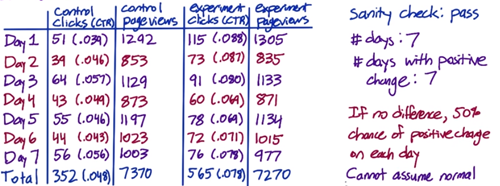 control clicks (CTR) control pageviews experiment clicks (CTR) experiment pageviews
Day 1 51 (.039) 1292 115 (.088) 1305
Day 2 39 (.046) 853 73 (.087) 835
Day 3 64 (.057) 1129 91 (.080) 1133
Day 4 43 (.049) 873 60 (.069) 871
Day 5 55 (.046) 1197 78 (.069) 1134
Day 6 44 (.043) 1023 72 (.071) 1015
Day 7 56 (.056) 1003 76 (.078) 977
Total 352 (.048) 7370 565 (.078) 7270
Sanity check: pass
# days: 7
# days with positive
change: 7
If no difference, 50%
chance of positive change
on each day
Cannot assume normal